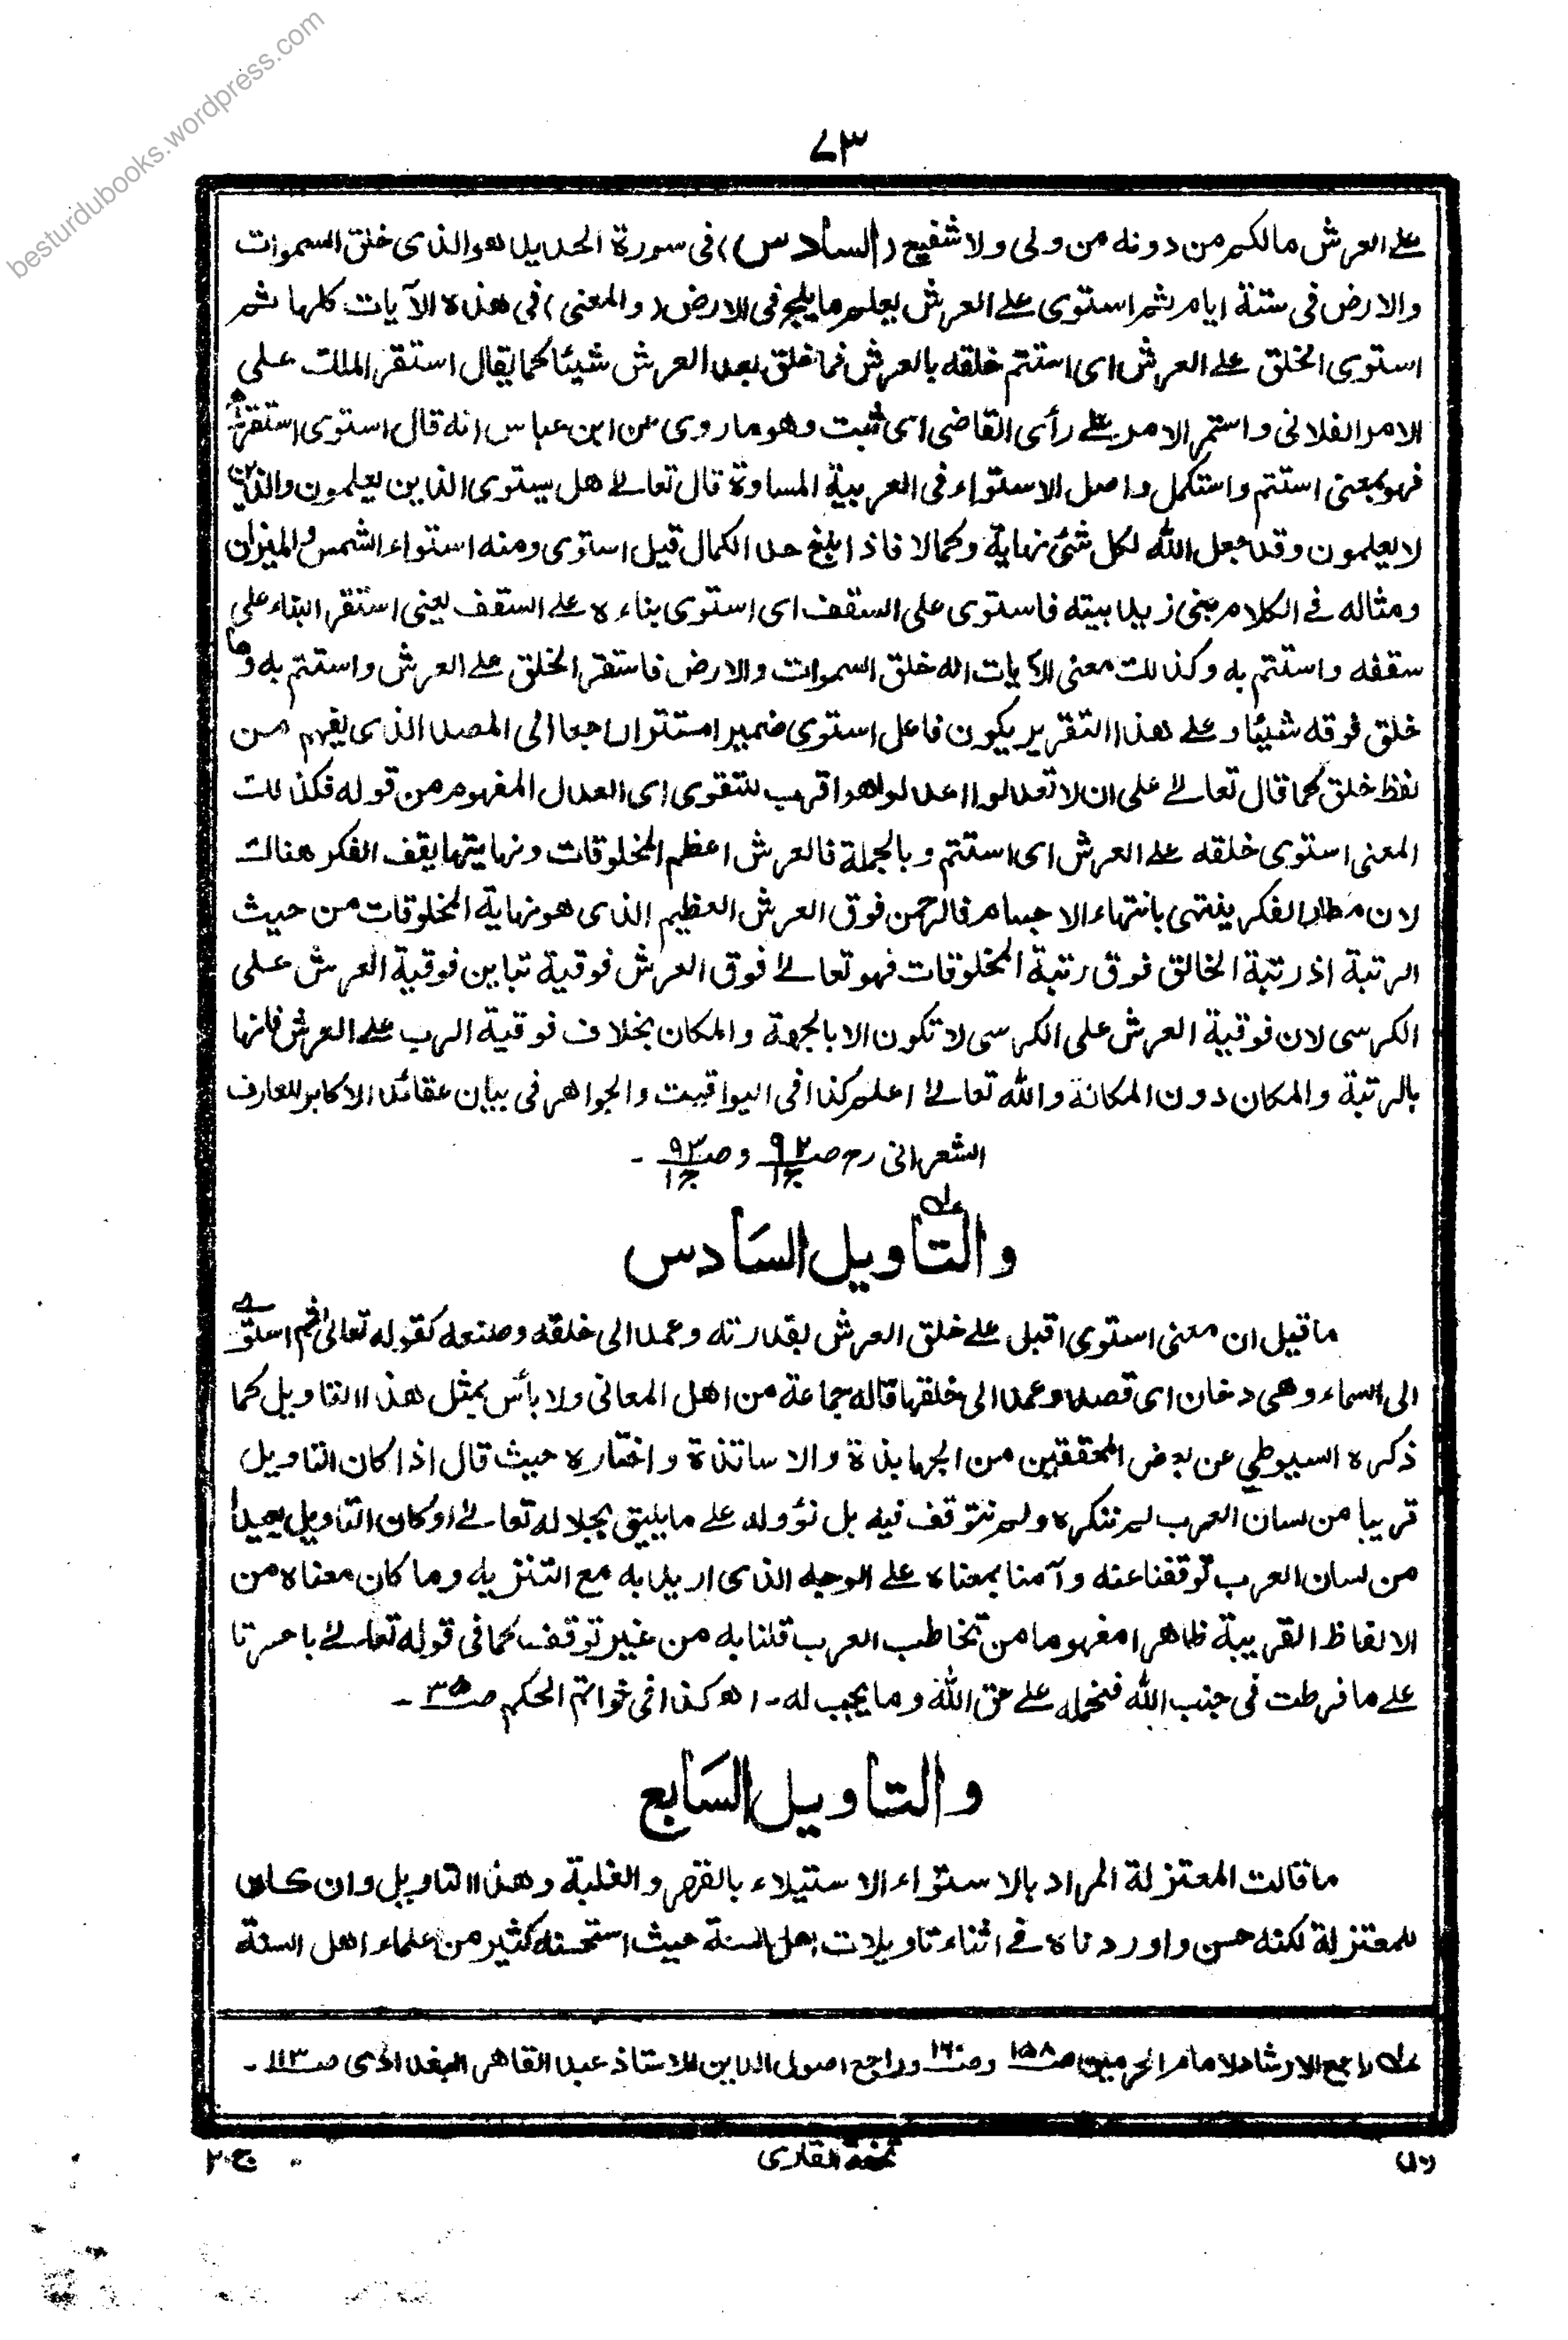 besturdubooks.wordpress.com
٧٣
على العرش مالكم من دونه من ولى ولا شفيع (السادس) فى سورة الحديد هو الذى خلق السموات
والارض فى ستة ايام ثم استوى على العرش يعلم ما يلج فى الارض (والمعنى) فى هذه الآيات كلها ثم
استوى الخلق على العرش اى استتم خلقه بالعرش فما خلق بعد العرش شيئا كما يقال استقر الملك على
الامر الفلانى واستمر الامر على رأى القاضى اى ثبت وهو ما روى عن ابن عباس انه قال استوى استقر اھ
فهو بمعنى استتم واستكمل واصل الاستواء فى العربية المساوة قال تعالى هل يستوى الذين يعلمون والذين
لا يعلمون وقد جعل الله لكل شئ نهاية وكمالا فاذا بلغ حد الكمال قيل استوى ومنه استواء الشمس والميزان
ومثاله فى الكلام بنى زيد بيته فاستوى على السقف اى استوى بناءه على السقف يعنى استقر البناء على
سقفه واستتم به وكذلك معنى الآيات الله خلق السموات والارض فاستقر الخلق على العرش واستتم به وما
خلق فوقه شيئا وعلى هذا التقرير يكون فاعل استوى ضميرا مستترا راجعا الى المصدر الذى يفهم من
لفظ خلق كما قال تعالى على ان لا تعدلوا اعدلوا هو اقرب للتقوى اى العدل المفهوم من قوله فكذلك
المعنى استوى خلقه على العرش اى استتم وبالجملة فالعرش اعظم المخلوقات ونهايتها يقف الفكر هنالك
لان مطار الفكر ينتهى بانتهاء الاجسام فالرحمن فوق العرش العظيم الذى هو نهاية المخلوقات من حيث
الرتبة اذ رتبة الخالق فوق رتبة المخلوقات فهو تعالى فوق العرش فوقية تباين فوقية العرش على
الكرسى لان فوقية العرش على الكرسى لا تكون الا بالجهة والمكان بخلاف فوقية الرب على العرش فانها
بالرتبة والمكان دون المكانة والله تعالى اعلم كذا فى اليواقيت والجواهر فى بيان عقائد الاكابر للعارف
الشعرانى رح ص ٩٢ ج١ و ص ٩٣ ج١ -
والتأويل السادس عله
ما قيل ان معنى استوى اقبل على خلق العرش بقدرته وعمد الى خلقه وصنعه كقوله تعالى ثم استوى
الى السماء وهى دخان اى قصد وعمد الى خلقها قاله جماعة من اهل المعانى ولا بأس بمثل هذا التاويل كما
ذكره السيوطي عن بعض المحققين من الجهابذة والاساتذة واختاره حيث قال اذا كان التاويل
قريبا من لسان العرب لم ننكره ولم نتوقف فيه بل نؤوله على ما يليق بجلاله تعالى او كان التاويل بعيدا
من لسان العرب توقفنا عنه وآمنا بمعناه على الوجه الذى اريد به مع التنزيه وما كان معناه من
الالفاظ القريبة ظاهرا مفهوما من تخاطب العرب قلنا به من غير توقف كما فى قوله تعالى يا حسرتا
على ما فرطت فى جنب الله فنحمله على حق الله وما يجب له - اھ كذا فى خواتم الحكم ص ٣٥ -
والتاويل السابع
ما قالت المعتزلة المراد بالاستواء الاستيلاء بالقهر والغلبة وهذا التاويل وان كان
للمعتزلة لكنه حسن واوردناه فى اثناء تاويلات اهل السنة حيث استحسنه كثير من علماء اهل السنة
عله راجع الارشاد لامام الحرمين ص ١٥٨ و ص ١٦٠ وراجع اصول الدين للاستاذ عبد القاهر البغدادى ص ١١٣ -
تحفة القارى
ج ٢٠